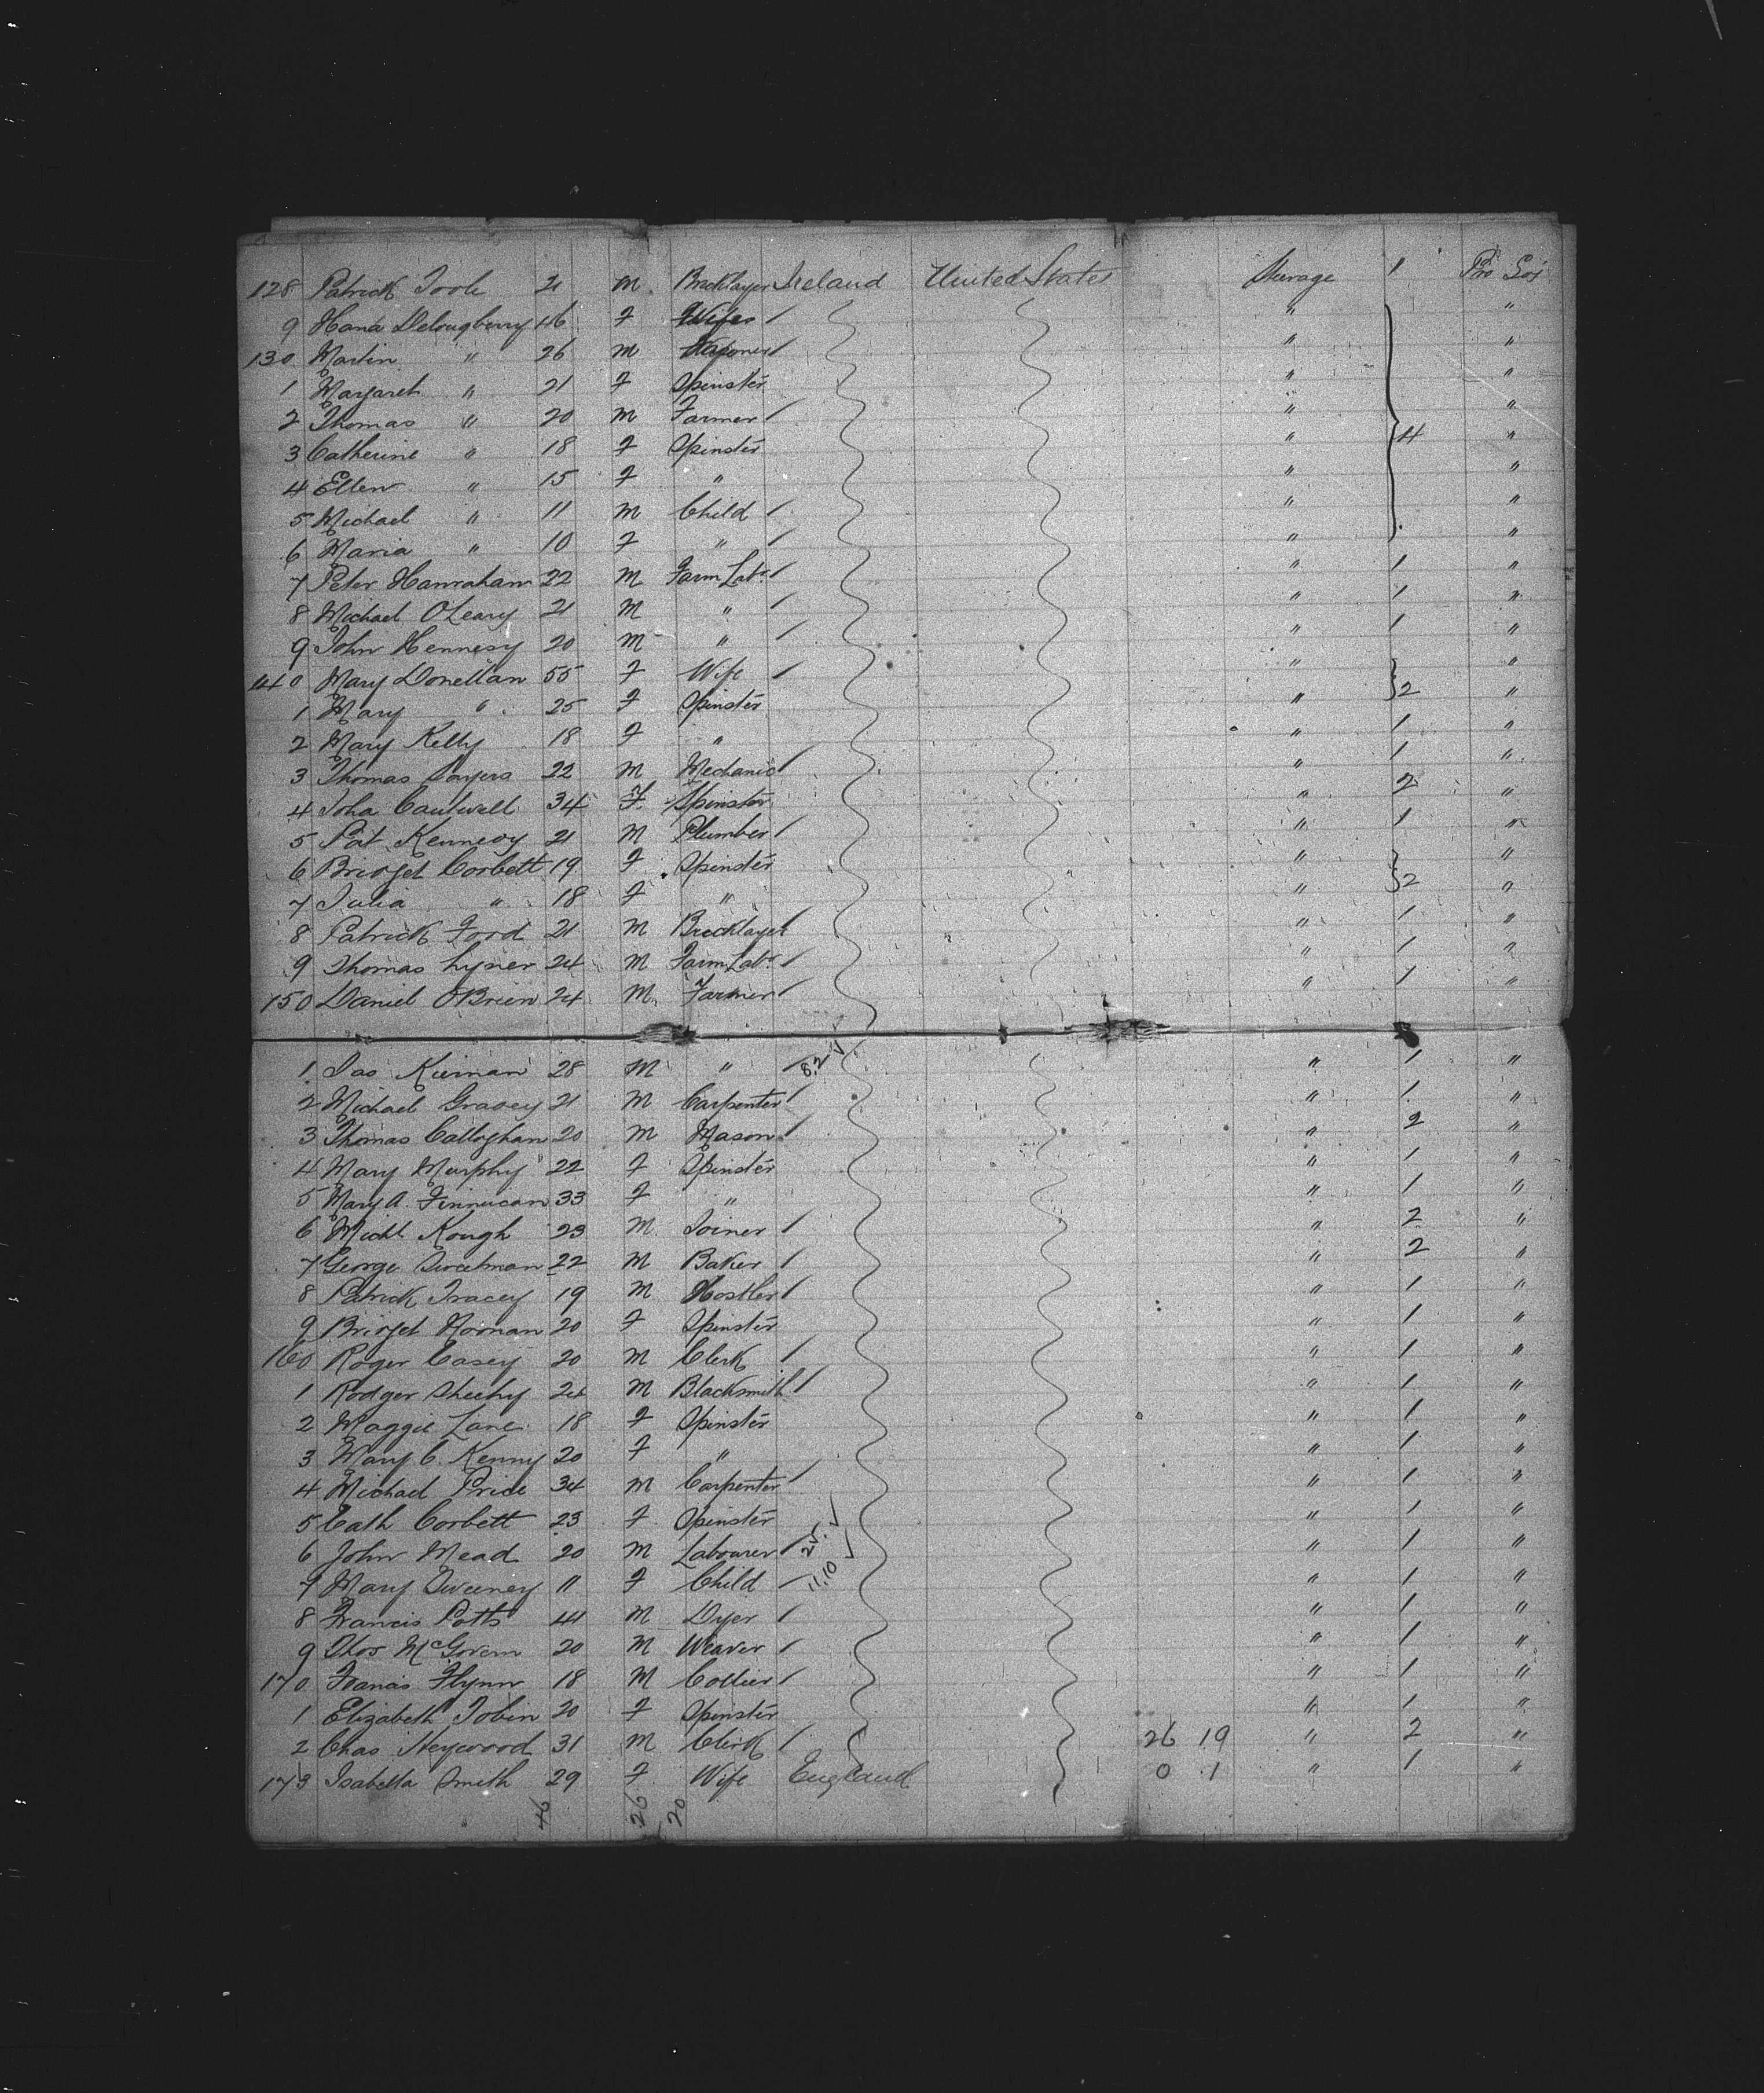 128 Patrick Toole 21 M Bricklayer Ireland United States Steerage 1 Pro Soj
9 Hana Delougberry 46 F Wife / " "
130 Martin " 26 M / " "
1 Margaret " 21 F Spinster " "
2 Thomas " 20 M Farmer / " "
3 Catherine " 18 F Spinster " 4 "
4 Ellen " 15 F " " "
5 Michael " 11 M Child / " "
6 Maria " 10 F " / " "
7 Peter Hanrahan 22 M Farm Labr / " 1 "
8 Michael O'Leary 21 M " / " 1 "
9 John Hennesy 20 M " / " 1 "
140 Mary Donellan 55 F Wife / " "
1 Mary " 25 F Spinster " 2 "
2 Mary Kelly 18 F " " 1 "
3 Thomas Sayers 22 M Mechanic / " 1 "
4 Joha Cautwell 34 F Spinster " 2 "
5 Pat Kennedy 21 M Plumber / " 1 "
6 Bridget Corbett 19 F Spinster " "
7 Julia " 18 F " " 2 "
8 Patrick Ford 21 M Bricklayer / " 1 "
9 Thomas Lyner 24 M Farm Labr / " 1 "
150 Daniel O'Brien 24 M Farmer / " 1 "
1 Jas Kiernan 28 M " / 8.2 " 1 "
2 Michael Gracey 21 M Carpenter / " 1 "
3 Thomas Callaghan 20 M Mason / " 2 "
4 Mary Murphy 22 F Spinster " 1 "
5 Mary A. Finnucan 33 F " " 1 "
6 Michl Kough 23 M Joiner / " 2 "
7 George Sweetman 22 M Baker / " 2 "
8 Patrick Tracey 19 M Hostler / " 1 "
9 Bridget Noonan 20 F Spinster " 1 "
160 Roger Casey 20 M Clerk / " 1 "
1 Rodger Sheehy 24 M Blacksmith / " 1 "
2 Maggie Lane 18 F Spinster " 1 "
3 Mary C. Kenny 20 F " " 1 "
4 Michael Price 34 M Carpenter / " 1 "
5 Cath Corbett 23 F Spinster " 1 "
6 John Mead 20 M Labourer / " 1 "
7 Mary Sweeney 11 F Child / 11.10 " 1 "
8 Francis Potts 44 M Dyer / " 1 "
9 Thos McGovern 20 M Weaver / " 1 "
170 Francis Flynn 18 M Collier / " 1 "
1 Elizabeth Tobin 20 F Spinster " 1 "
2 Chas Heywood 31 M Clerk / 26 19 " 2 "
173 Isabella Smith 29 F Wife England 0 1 " 1 "
46 26 20